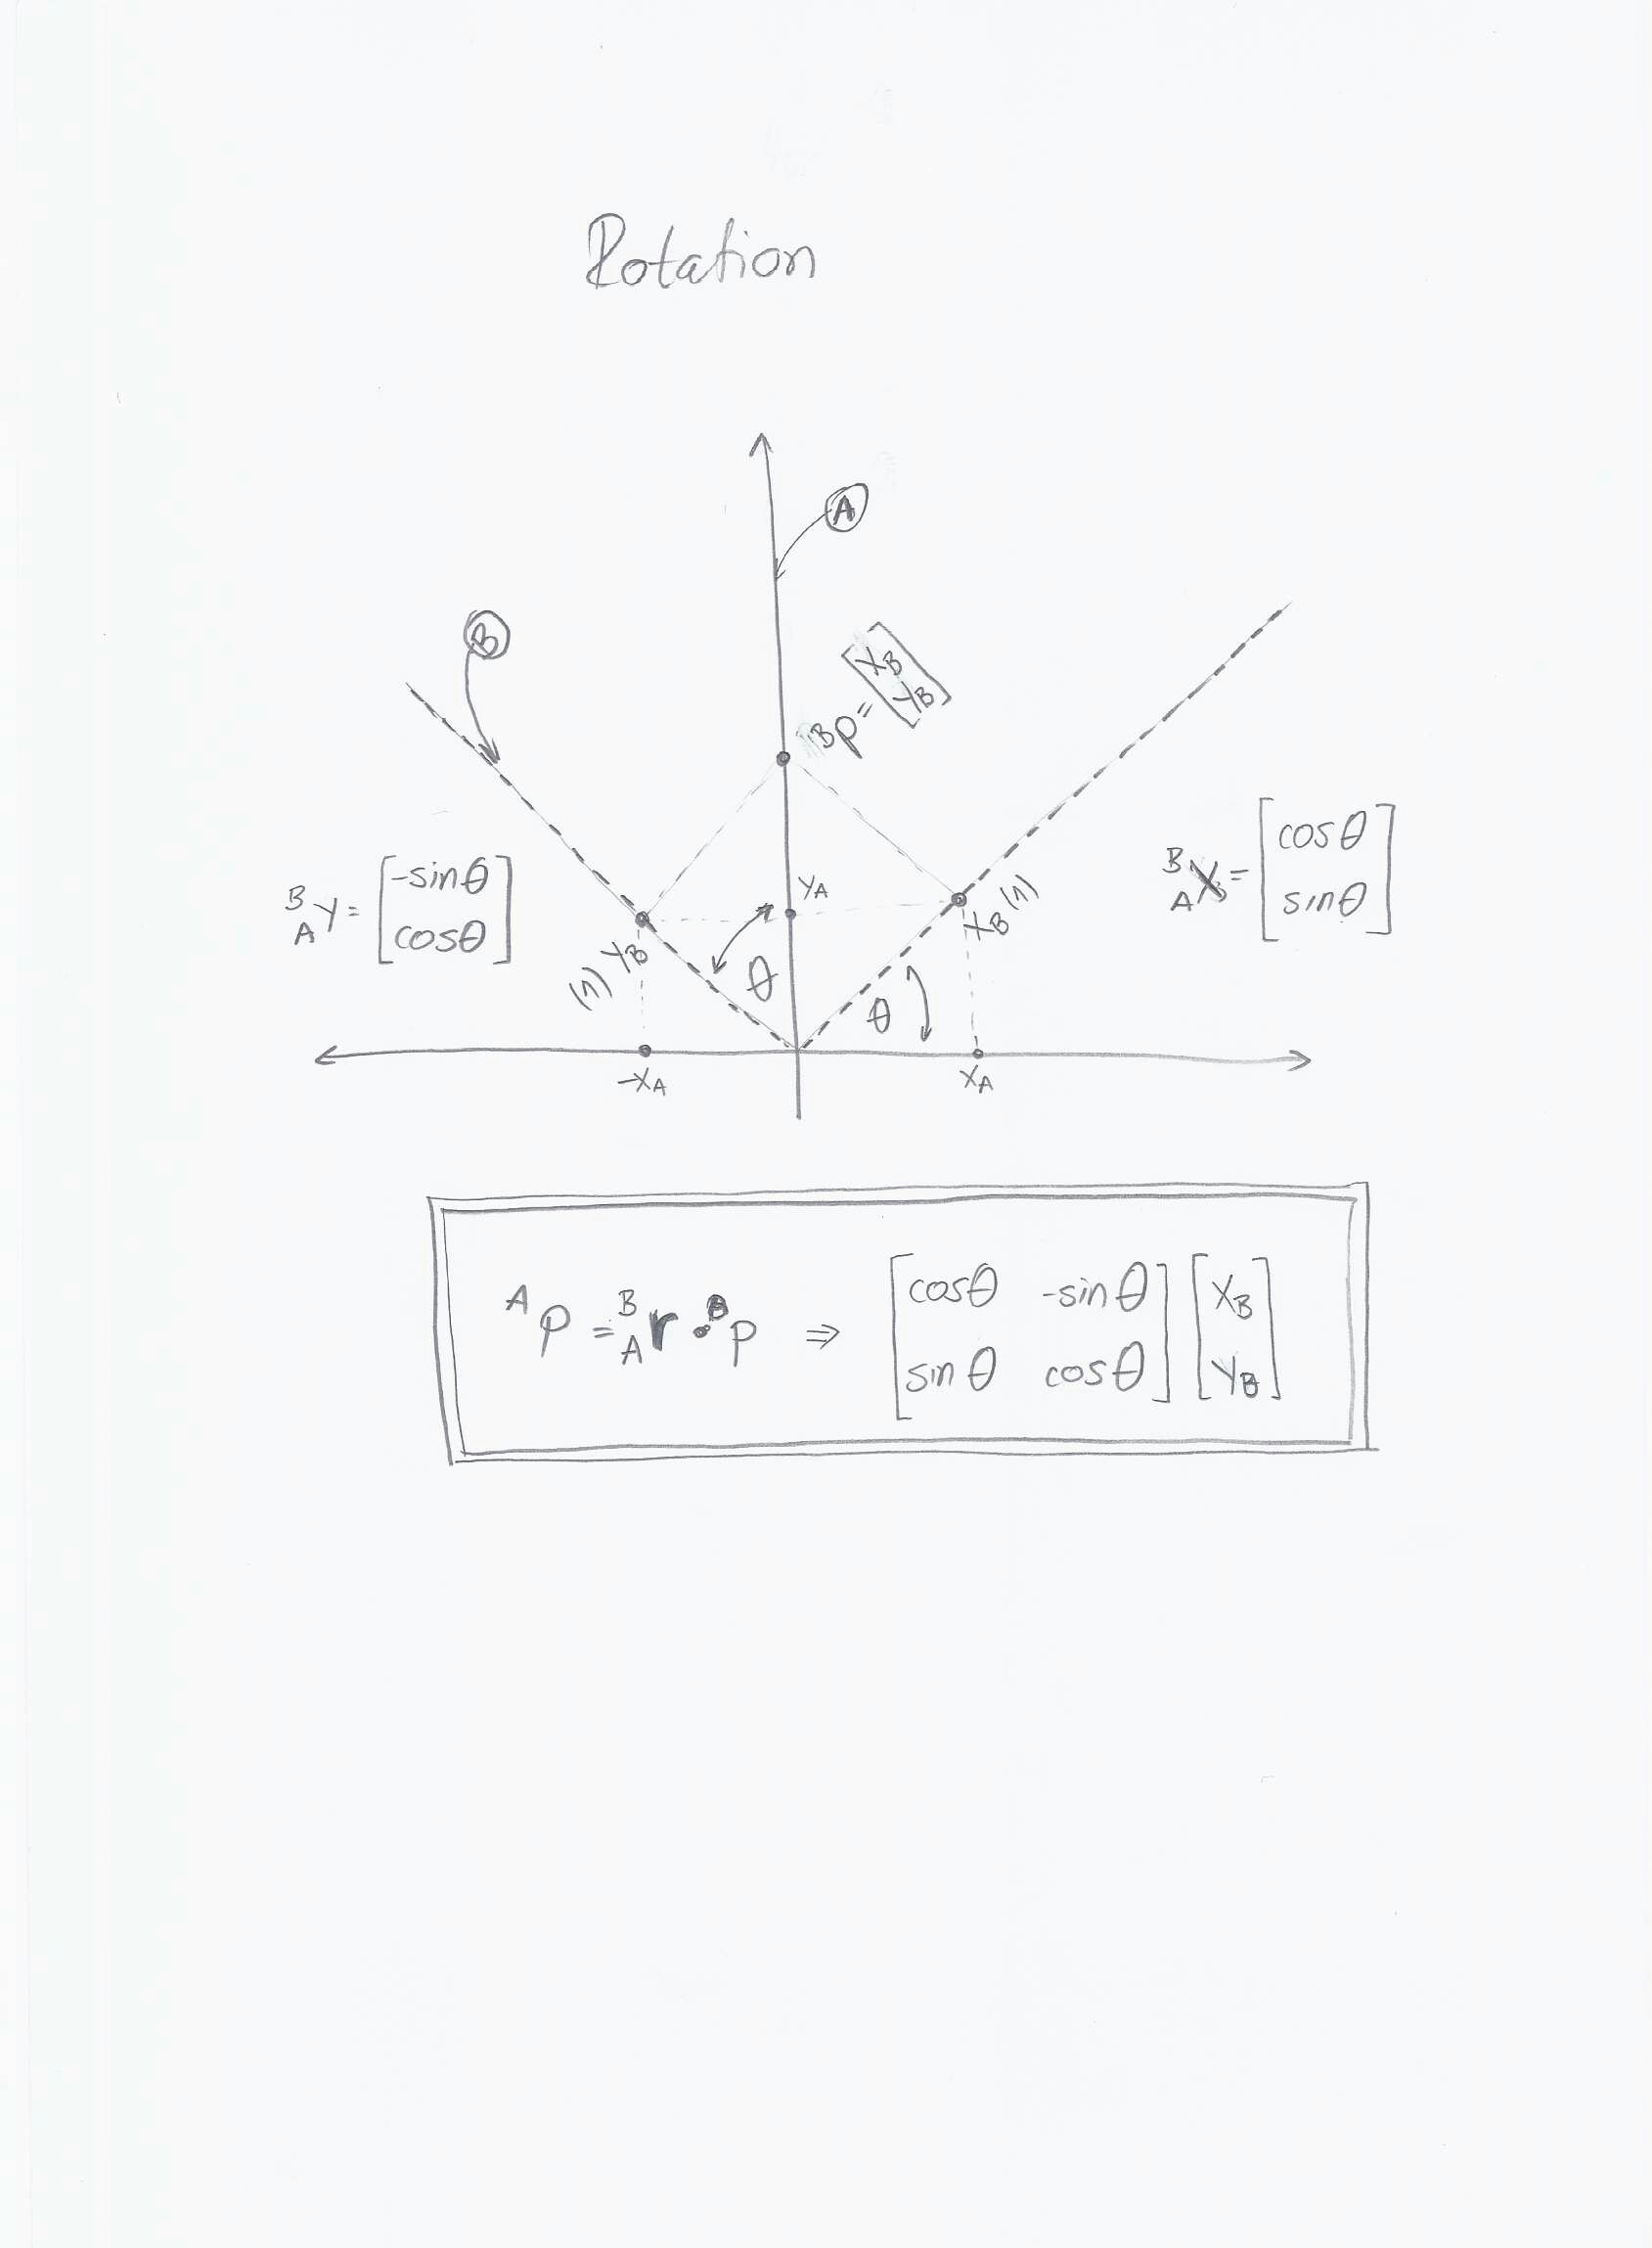 Rotation
A
B
ᴮp = [X_B
Y_B]
Y_A
ᴮ_A Y = [-sinθ
cosθ]
ᴮ_A X = [cosθ
sinθ]
(1) Y_B
X_B (1)
θ
θ
-X_A
X_A
ᴬP = ᴮ_A r · ᴮp ⇒ [cosθ -sinθ
sinθ cosθ] [X_B
Y_B]